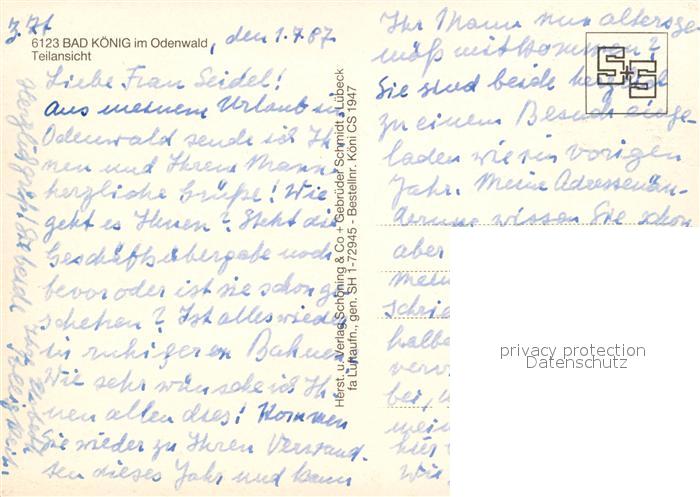 z. Zt
6123 BAD KÖNIG im Odenwald
Teilansicht
, den 1.7.87
Liebe Frau Seidel!
Aus meinem Urlaub im
Odenwald sende ich Ih-
nen und Ihrem Mann
herzliche Grüße! Wie
geht es Ihnen? Steht die
Geschäftsübergabe noch
bevor oder ist sie schon ge-
schehen? Ist alles wieder
in ruhigeren Bahnen
Wie sehr wünsche ich Ih-
nen allen dies! Kommen
Sie wieder zu Ihren Verwand-
ten dieses Jahr und kann
Ihr Mann nun altersge-
mäß mitkommen?
Sie sind beide herzlich
zu einem Besuch einge-
laden wie im vorigen
Jahr. Meine Adressenän-
derung wissen Sie schon
aber
mein
schri
halbe
verw
bei,
mein
hier
wir
Herzl. grüßt Sie beide
Herst. u. Verlag Schöning & Co + Gebrüder Schmidt · Lübeck
fa Luftaufn., gen. SH 1-72945 - Bestellnr. Köni CS 1947
S+S
privacy protection
Datenschutz